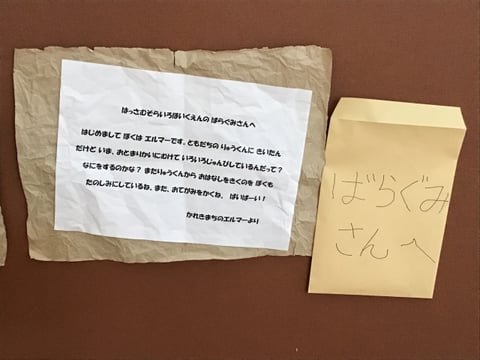 はっさむそらいろほいくえんの ばらぐみさんへ
はじめまして ぼくは エルマーです。ともだちの りゅうくんに きいたん
だけど いま、おとまりかいにむけて いろいろじゅんびしているんだって？
なにをするのかな？ またりゅうくんから おはなしをきくのを ぼくも
たのしみにしているね。また、おてがみをかくね。 ばいばーい！
かれきまちのエルマーより
ばらぐみ
さんへ